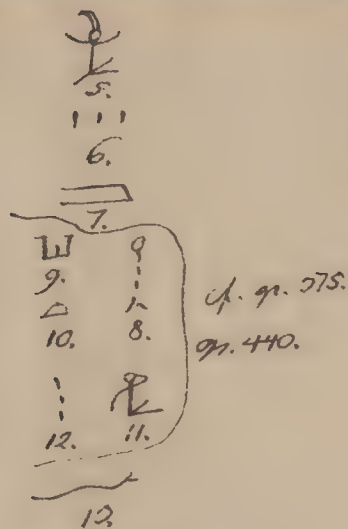 5.
6.
7.
9. 8.
10.
12. 11.
cf. gr. 375.
gr. 440.